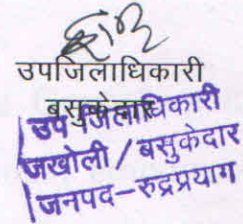 उपजिलाधिकारी
बसुकेदार
उप जिलाधिकारी
जखोली / बसुकेदार
जनपद-रुद्रप्रयाग